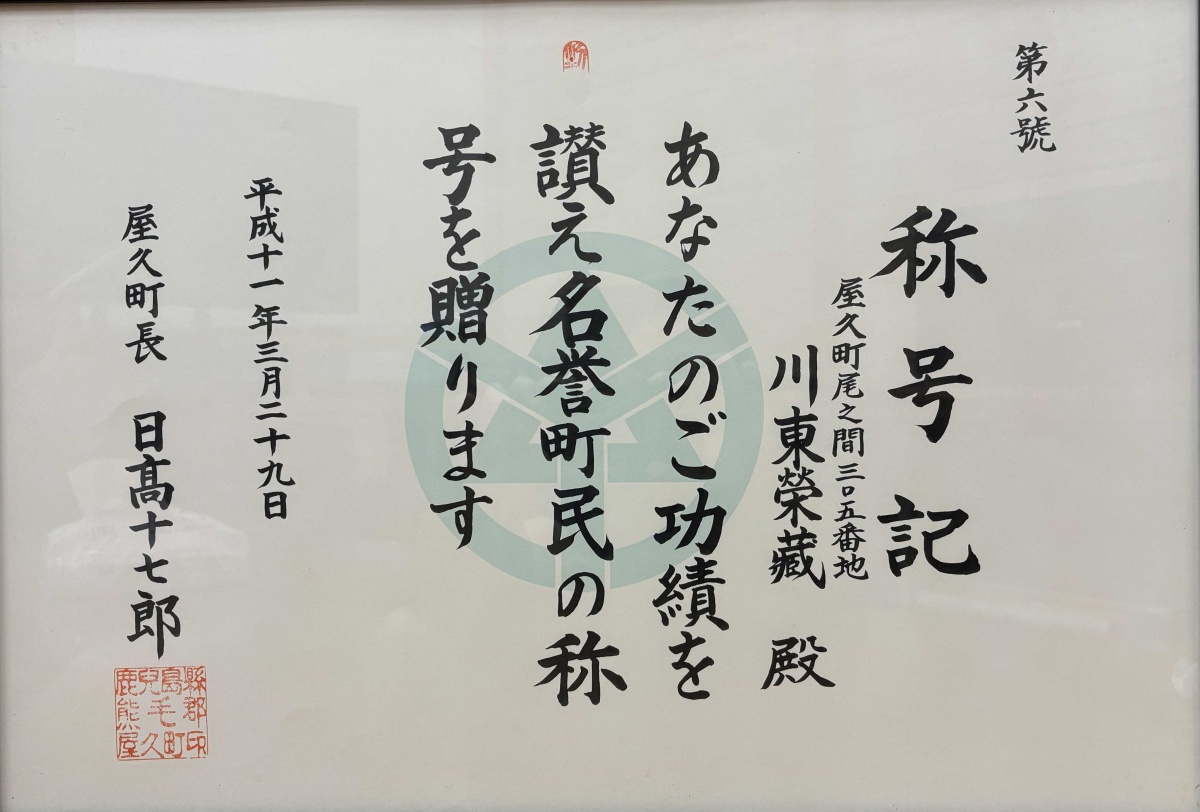 第六號
称号記
屋久町尾之間三〇五番地
川東榮藏 殿
あなたのご功績を
讃え名誉町民の称
号を贈ります
平成十一年三月二十九日
屋久町長 日髙十七郎
鹿兒島縣
熊毛郡
屋久町印